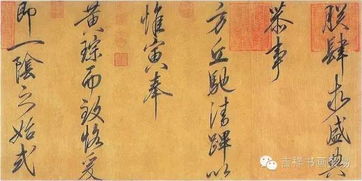 朕肆求盛典
恭事
方丘馳清蹕以
惟寅奉
黃琮而致恪爰
即一陰之始式
吉祥书画